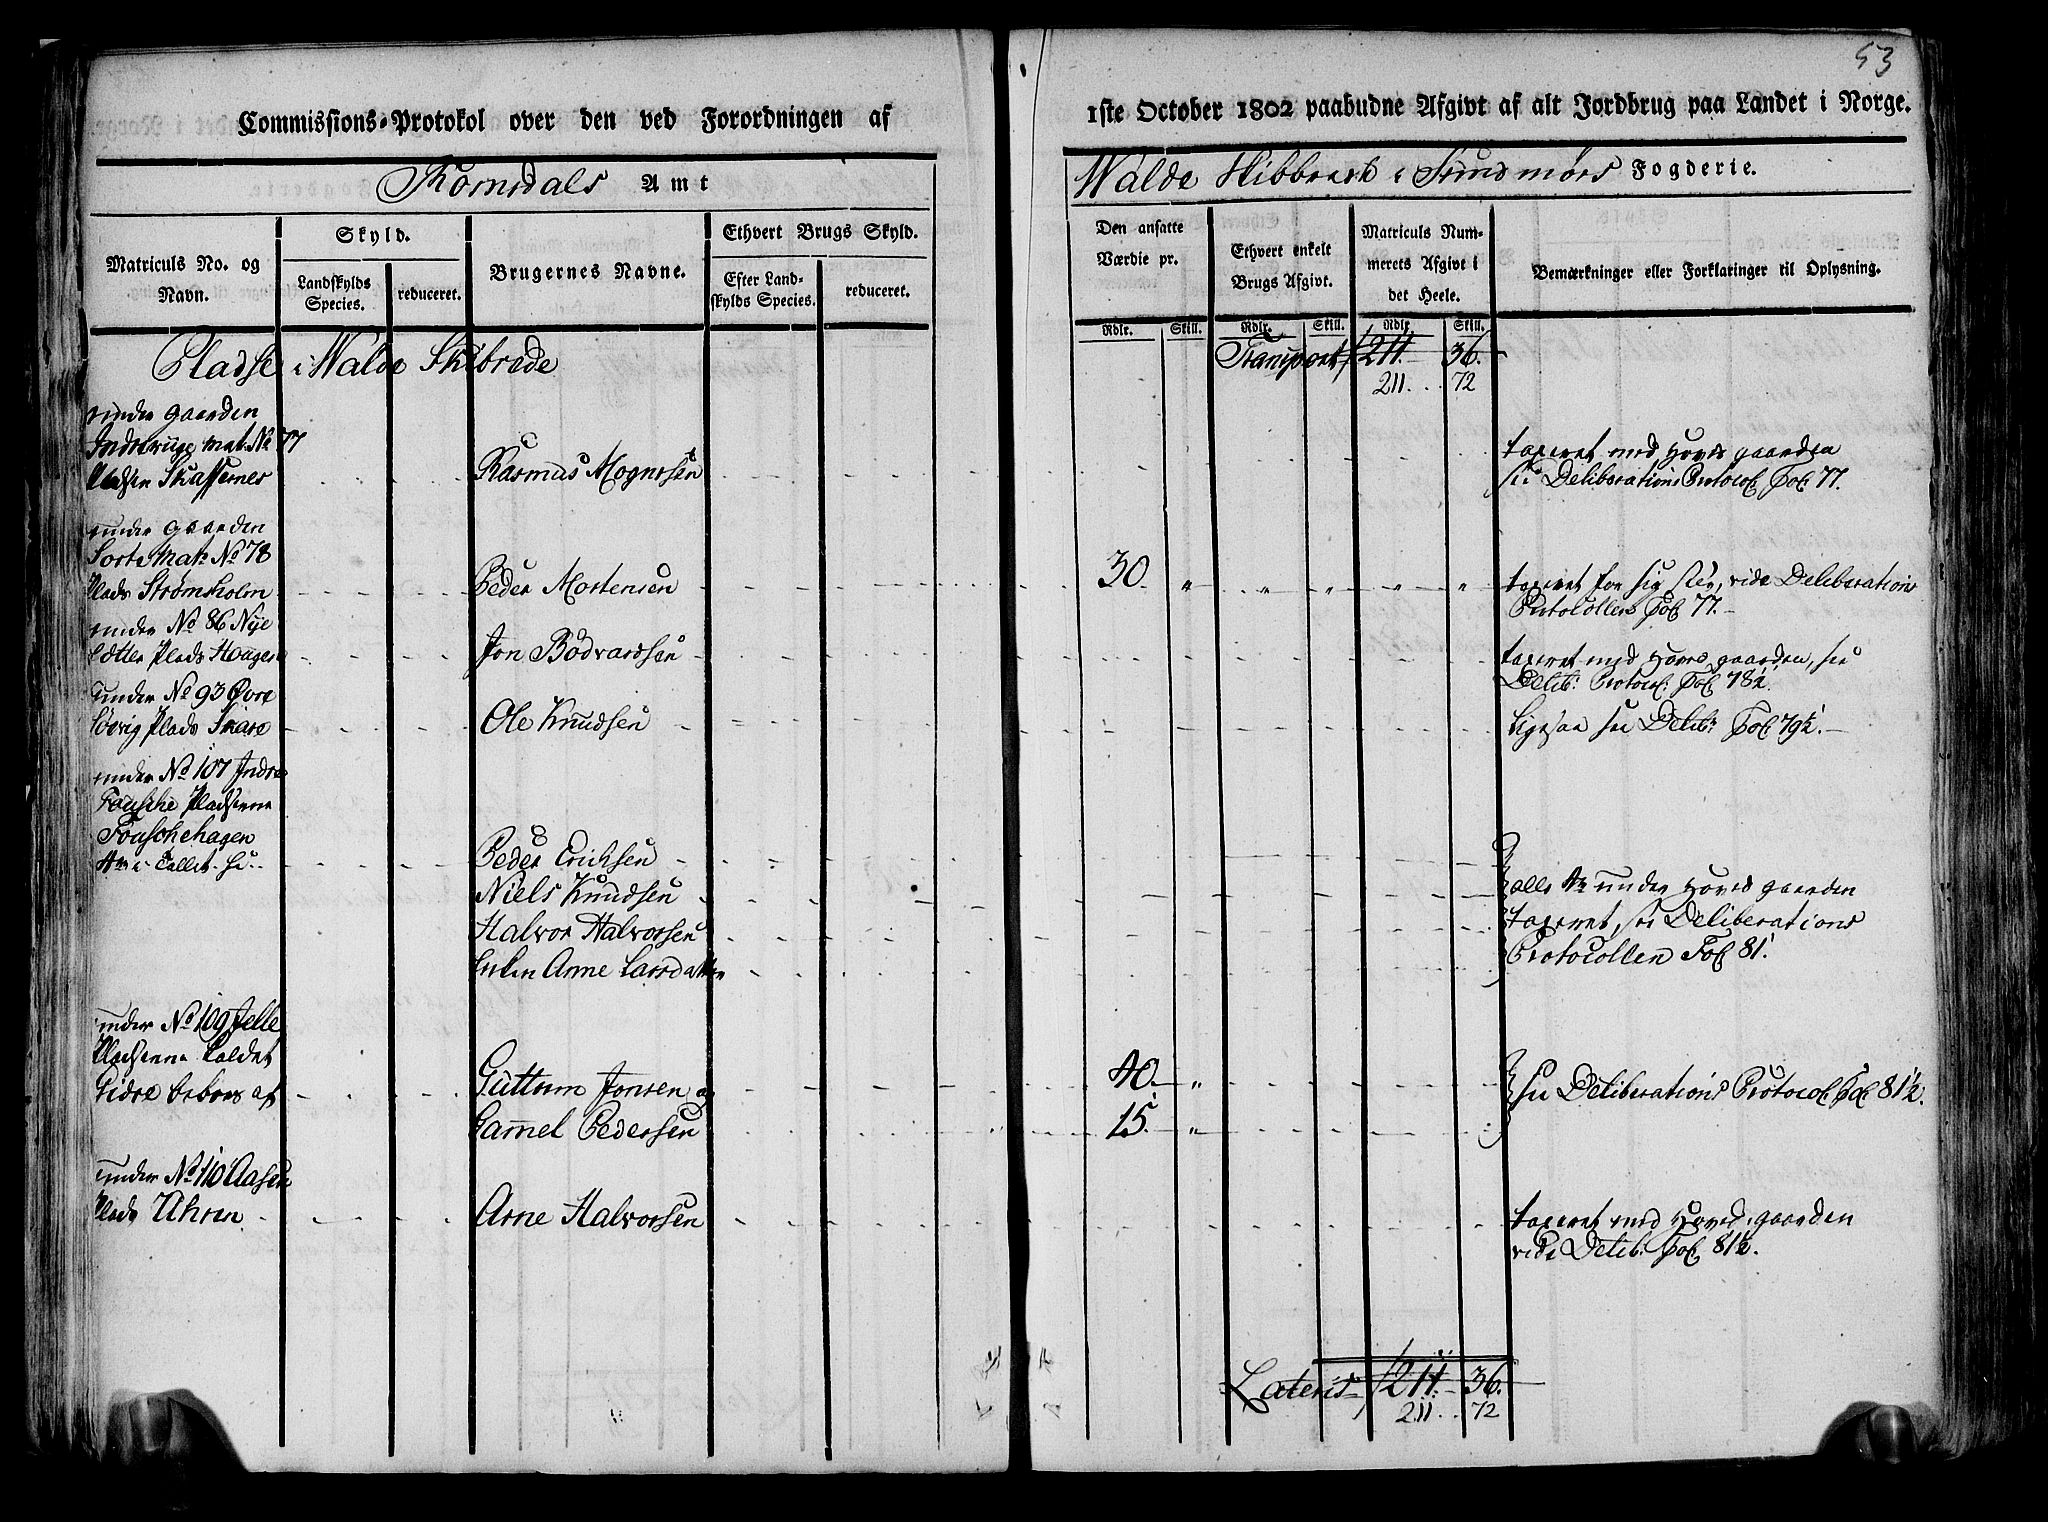 53
Commissions-Protokol over den ved Forordningen af
1ste October 1802 paabudne Afgivt af alt Jordbrug paa Landet i Norge.
Romsdals Amt
Walde Skibbrede i Sundmørs Fogderie.
Matriculs No. og Navn.
Skyld.
Landskylds Species.
reduceret.
Brugernes Navne.
Ethvert Brugs Skyld.
Efter Landskylds Species.
reduceret.
Den ansatte Værdie pr.
Ethvert enkelt Brugs Afgivt.
Matriculs Nummerets Afgivt i det Heele.
Bemærkninger eller Forklaringer til Oplysning.
Rdlr. Skill. Rdlr. Skill. Rdlr. Skill.
Pladse i Walde Skibrede
Transport 211. 36.
211. 72
under gaarden
Indre mat. No 77
Pladsen Rasmus Mognssen
taxeret med Hoved gaarden
see Deliberations Protocol Fol 77.
under gaarden
Sorte Mat: No 78
Plads Strømsholm Peder Mortensen 30 " " " " "
taxeret for sig selv, vide Deliberations
Protocollen Fol 77.
under No 86 Nye
Sætter Plads Hougen Jon Bodvardsen
taxeret med Hoved gaarden, see
Delib: Protocol: Fol 78½.
under No 93 Øvre
Søvig Plads Skare Ole Knudsen
Ligesaa see Delib: Fol 79½.
under No 107 Indre
Fousche Pladsene
Fouschehagen
4re i Tallet. Peder Erichsen
Niels Knudsen
Halvor Halvorsen
Enken Anne Larsdatter
alle 4re under Hoved gaarden
taxeret, see Deliberations
Protocollen Fol 81.
under No 109 Jelle
Pladsene kaldet
Lidre af Guttorm Jonsen og 40 "
Gamel Pedersen 15 "
see Deliberations Protocol Fol 81½.
under No 110 Aasen
Plads Uhren Arne Halvorsen
taxeret med Hoved gaarden
vide Delib: Fol 81½.
Lateris 211. 36.
211. 72